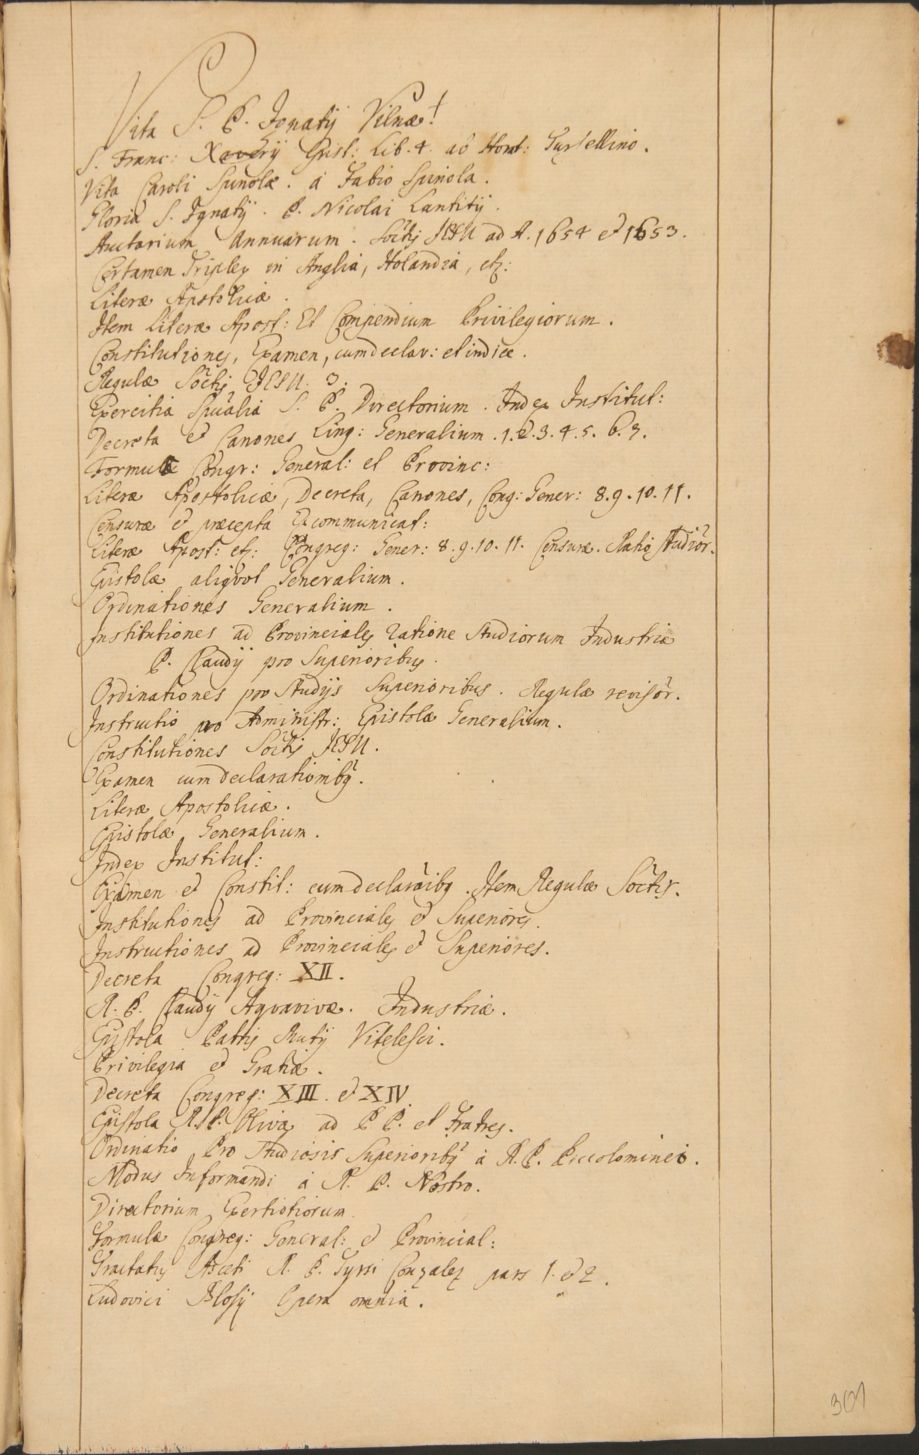 Vita S. P. Ignatij Vilnæ!
S. Franc: Xaverij Epist: Lib. 4. ab Horat: Tursellino.
Vita Caroli Spinolæ. á Fabio Spinola.
Gloria S. Ignatij. P. Nicolai Lantitij.
Auctarium Annuarum. Soctis JESU ad A. 1654 et 1653.
Certamen Triplex in Anglia, Holandia, etz:
Literæ Apostolicæ.
Item Literæ Apost: Et Compendium Privilegiorum.
Constitutiones, Examen, cum declar: et indice.
Regulæ Soctis JESU. 3.
Exercitia Spûalia S. P. Directorium. Index Institut:
Decreta et Canones Cong: Generalium. 1. 2. 3. 4. 5. 6. 7.
Formulæ Congr: General: et Provinc:
Literæ Apostolicæ, Decreta, Canones, Cong: Gener: 8. 9. 10. 11.
Censuræ et præcepta Excommunicat:
Literæ Apost: etz: Congreg: Gener: 8. 9. 10. 11. Censuræ. Ratio Studiôr.
Epistolæ aliqvot Generalium.
Ordinationes Generalium.
Institutiones ad Provinciales ratione Studiorum Industriæ
P. Claudij pro Superioribus.
Ordinationes pro Studijs Superioribus. Regulæ revisôr.
Instructio pro Administr: Epistolæ Generalium.
Constitutiones Soctis JESU.
Examen cum declarationibq.
Literæ Apostolicæ.
Epistolæ Generalium.
Index Institut:
Examen et Constit: cum declarâibq. Item Regulæ Soctis.
Institutiones ad Provinciales et Superiores.
Instructiones ad Provinciales et Superiores.
Decreta Congreg: XII.
R. P. Claudij Aqvavivæ. Industriæ.
Epistola Pattis Mutij Vitelesci.
Privilegia et Gratiæ.
Decreta Congreg: XIII. et XIV.
Epistola R. P. Oliva ad P P. et Fratres.
Ordinatio Pro Studiosis Superioribq á R. P. Piccolomineo.
Modus Informandi á R. P. Nostro.
Directorium Exertitiorum.
Formulæ Congreg: General: et Provincial:
Tractatus Asceti R. P. Tyrsi Gonzalez pars 1. et 2.
Ludovici Blosij Opera omnia.
301